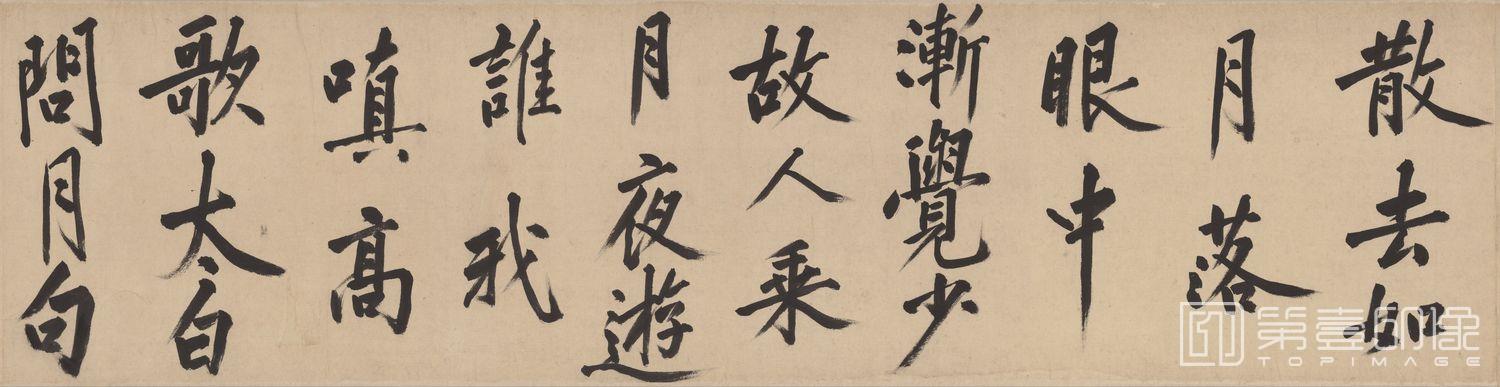 散去如
月落
眼中
漸覺少
故人乘
月夜遊
誰我
嗔高
歌太白
問月句
第壹印像
TOPIMAGE